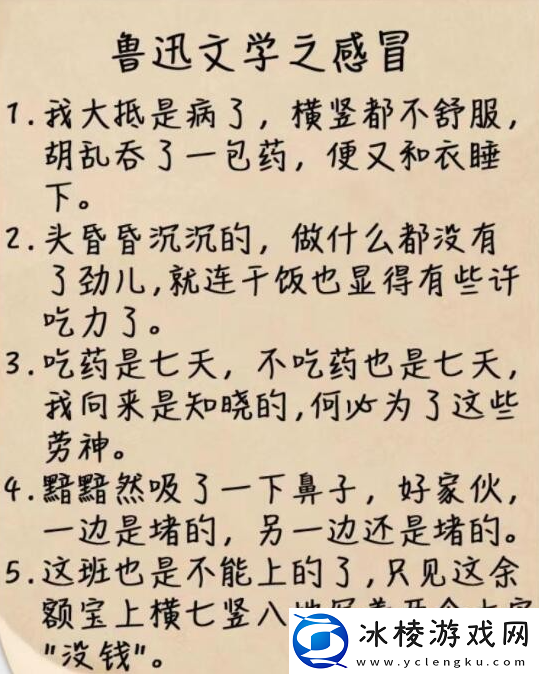 鲁迅文学之感冒
1.我大抵是病了，横竖都不舒服，
胡乱吞了一包药，便又和衣睡
下。
2.头昏昏沉沉的，做什么都没有
了劲儿,就连干饭也显得有些许
吃力了。
3.吃药是七天，不吃药也是七天，
我向来是知晓的,何必为了这些
劳神。
4.黯黯然吸了一下鼻子，好家伙，
一边是堵的，另一边还是堵的。
5.这班也是不能上的了,只见这余
额宝上横七竖八
"没钱"。
冰棱游戏网
www.yclengku.com